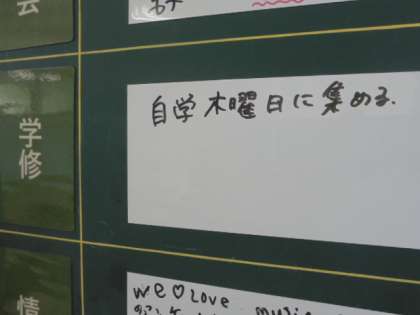 会
学修
自学木曜日に集める.
情
we♡Love
music